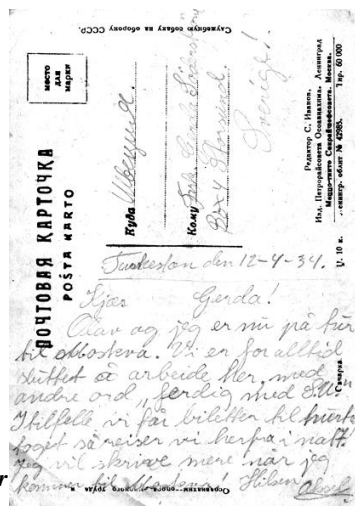 Служебную собаку на оборону СССР.
МЕСТО
ДЛЯ
МАРКИ
ПОЧТОВАЯ КАРТОЧКА
POŠTA KARTO
Куда Швеция.
Кому Frk. Gerda
Sverige!
Редактор С. Иванов.
Изд. Петрорайсовета Осоавиахима. Ленинград
Ленингр. облит № 42985. Тир. 60 000
Ц. 10 к.
Turkestan den 12-4-34.
Kjære Gerda!
Olav og jeg er nu på tur
til Moskva. Vi er for alltid
sluttet å arbeide her, med
andre ord, "ferdig med
I tilfelle vi får biletter til hurtig
toget så reiser vi herfra i natt.
Jeg vil skrive mere når jeg
kommer til Moskva! Hilsen
r